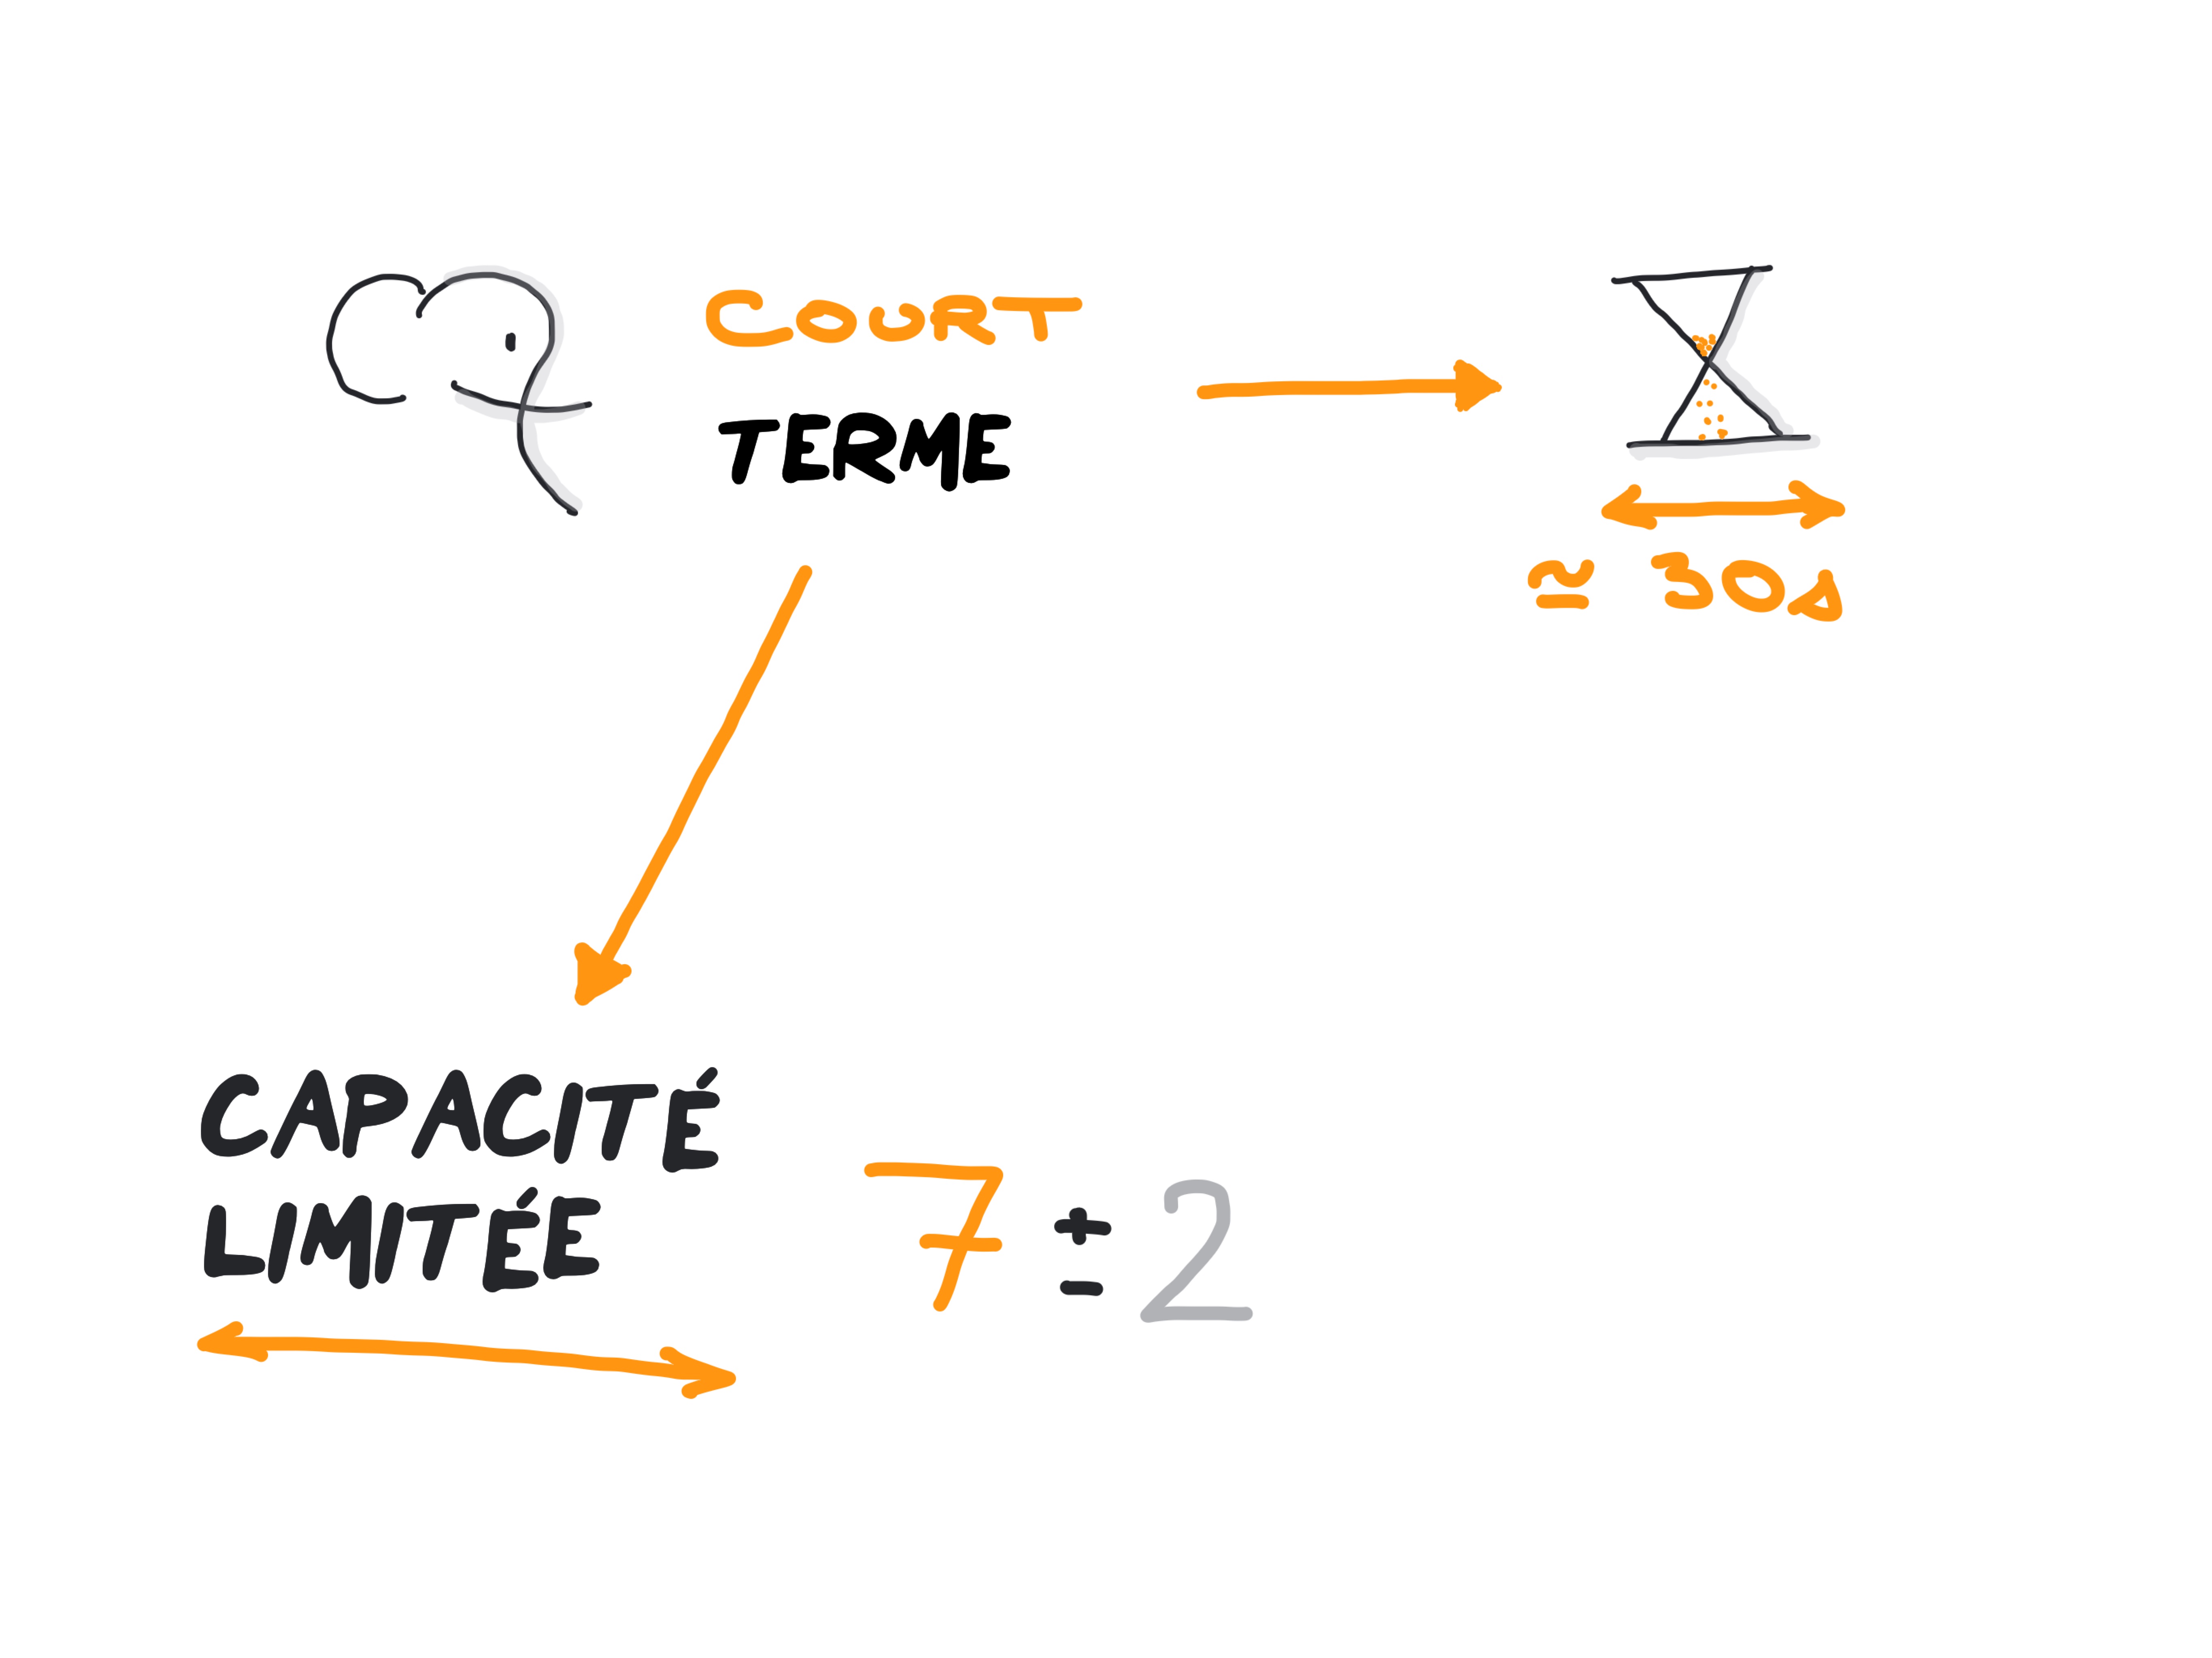 COURT
TERME
≃ 30s
CAPACITÉ
LIMITÉE
7 ± 2